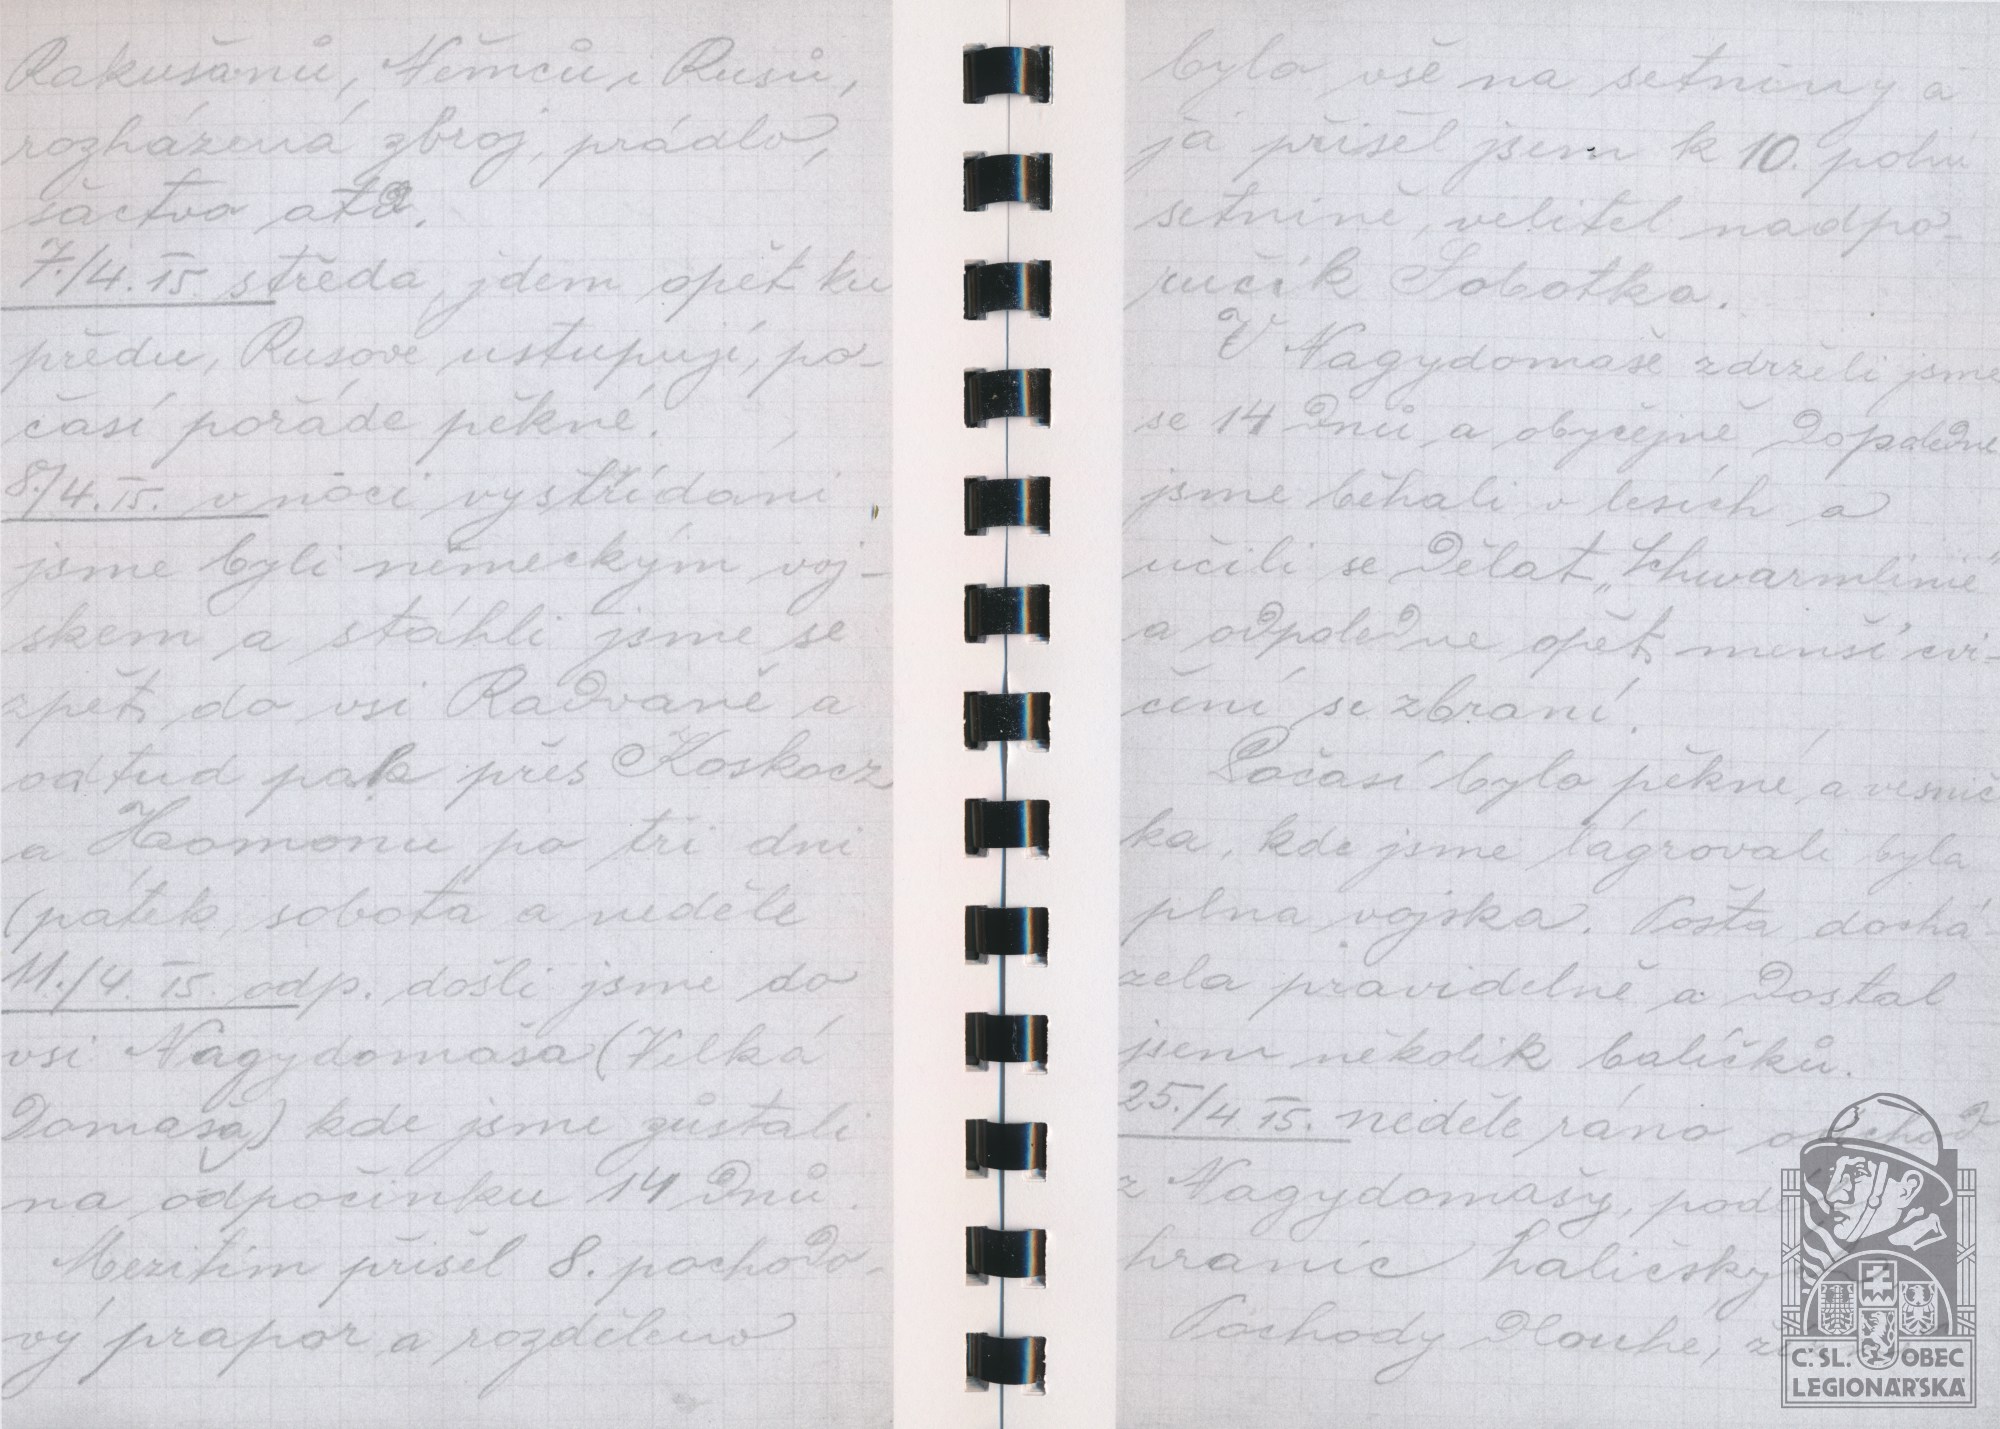 Rakušanů, Němců i Rusů,
rozházená zbroj, prádlo,
šactvo atd.
7./4. 15. středa, jdem opět ku
předu, Rusove ustupují, po-
časí pořáde pěkné.
8./4. 15. v noci vystřídani
jsme byli německým voj-
skem a stáhli jsme se
zpět do vsi Radvaně a
odtud pak přes Koskocz
a Homonu po tři dni
(pátek, sobota a neděle
11./4. 15. odp. došli jsme do
vsi Nagydomaša (Velká
Domaša) kde jsme zůstali
na odpočinku 14 dnů.
Mezitím přišel 8. pochodo-
vý prapor a rozděleno
bylo vše na setniny a
já přišel jsem k 10. polní
setnině, velitel nadpo-
ručík Sobotka.
V Nagydomaše zdrželi jsme
se 14 dnů a obyčejně dopoledne
jsme běhali v lesích a
učili se dělat „Schwarmlinie"
a odpoledne opět menší cvi-
čení se zbraní.
Počasí bylo pěkné, a vesnič
ka, kde jsme lágrovali byla
plna vojska. Pošta dochá-
zela pravidelně a dostal
jsem několik balíčků.
25./4. 15. neděle ráno odchod
z Nagydomašy, podél
hranic haličských
Pochody dlouhé,
Č.SL. OBEC
LEGIONÁŘSKÁ